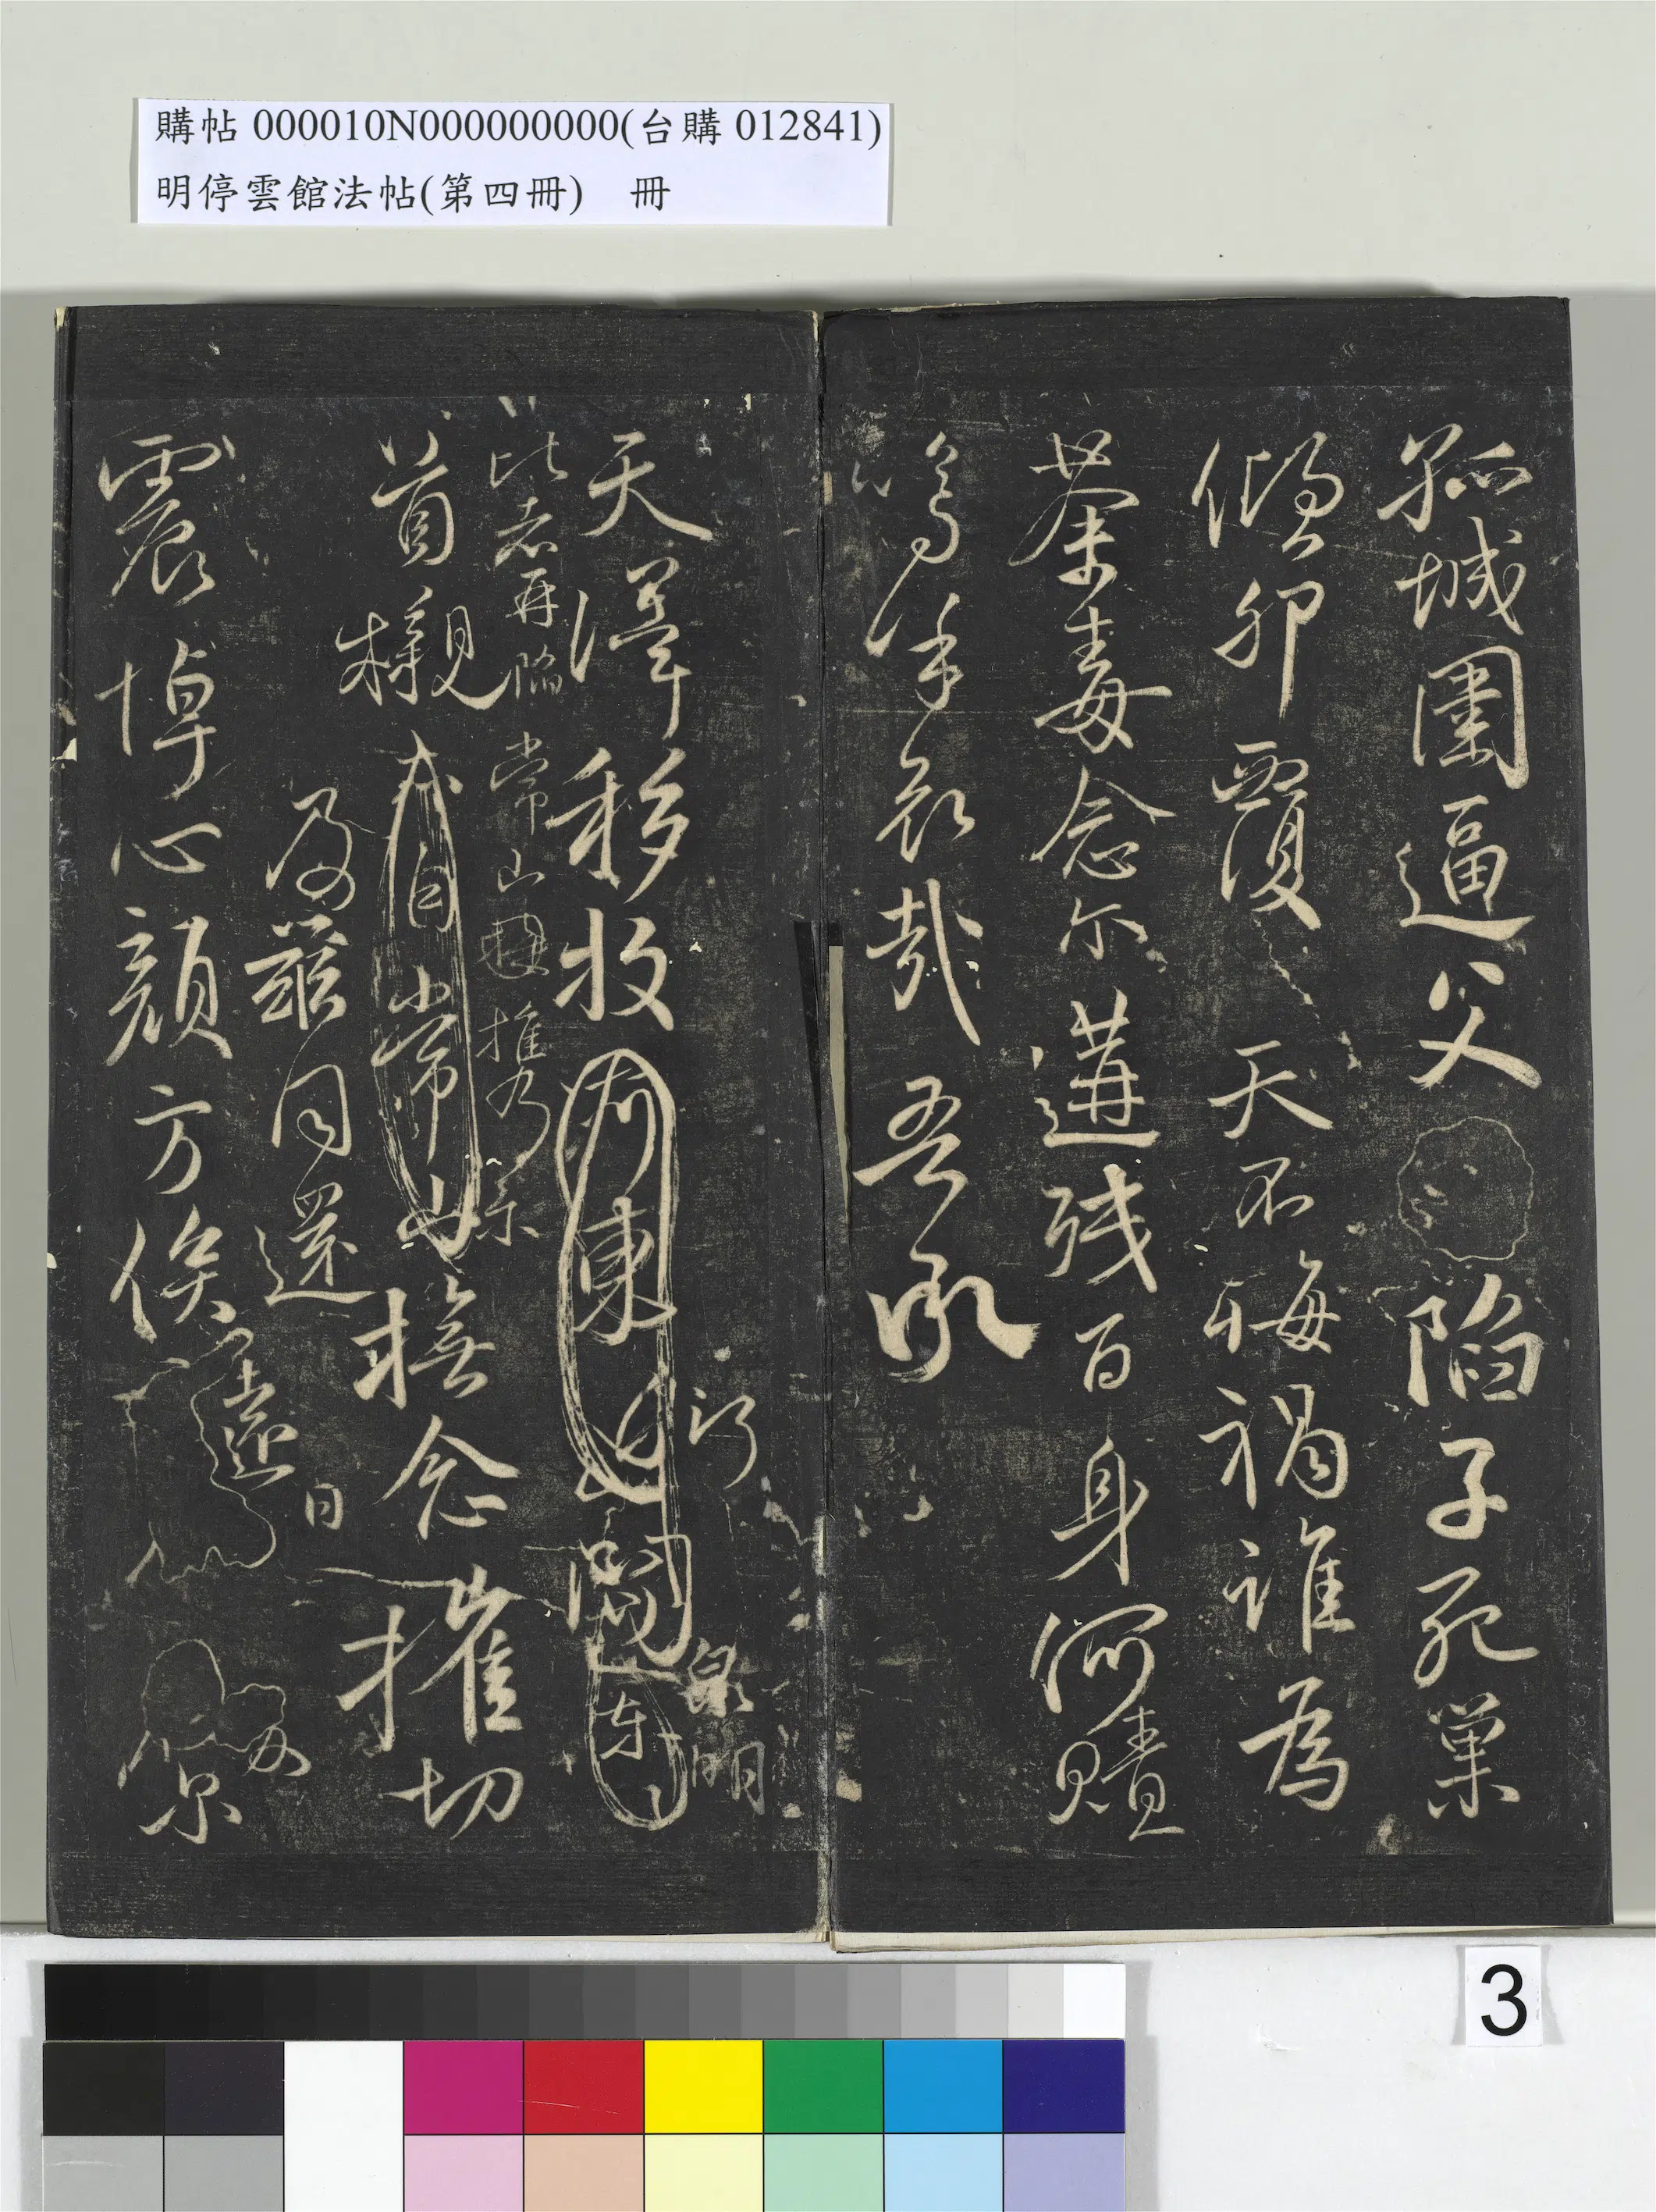 購帖 000010N000000000(台購 012841)
明停雲館法帖(第四冊) 冊
孤城圍逼父陷子死巢
傾卵覆天不悔禍誰為
荼毒念爾遘殘百身何贖
嗚乎哀哉吾承
天澤移牧河東近關
行
東
泉明
比者再陷常山攜
首櫬亦自常山
及茲同還
撫念摧切
震悼心顏方俟
遠日
爾
3